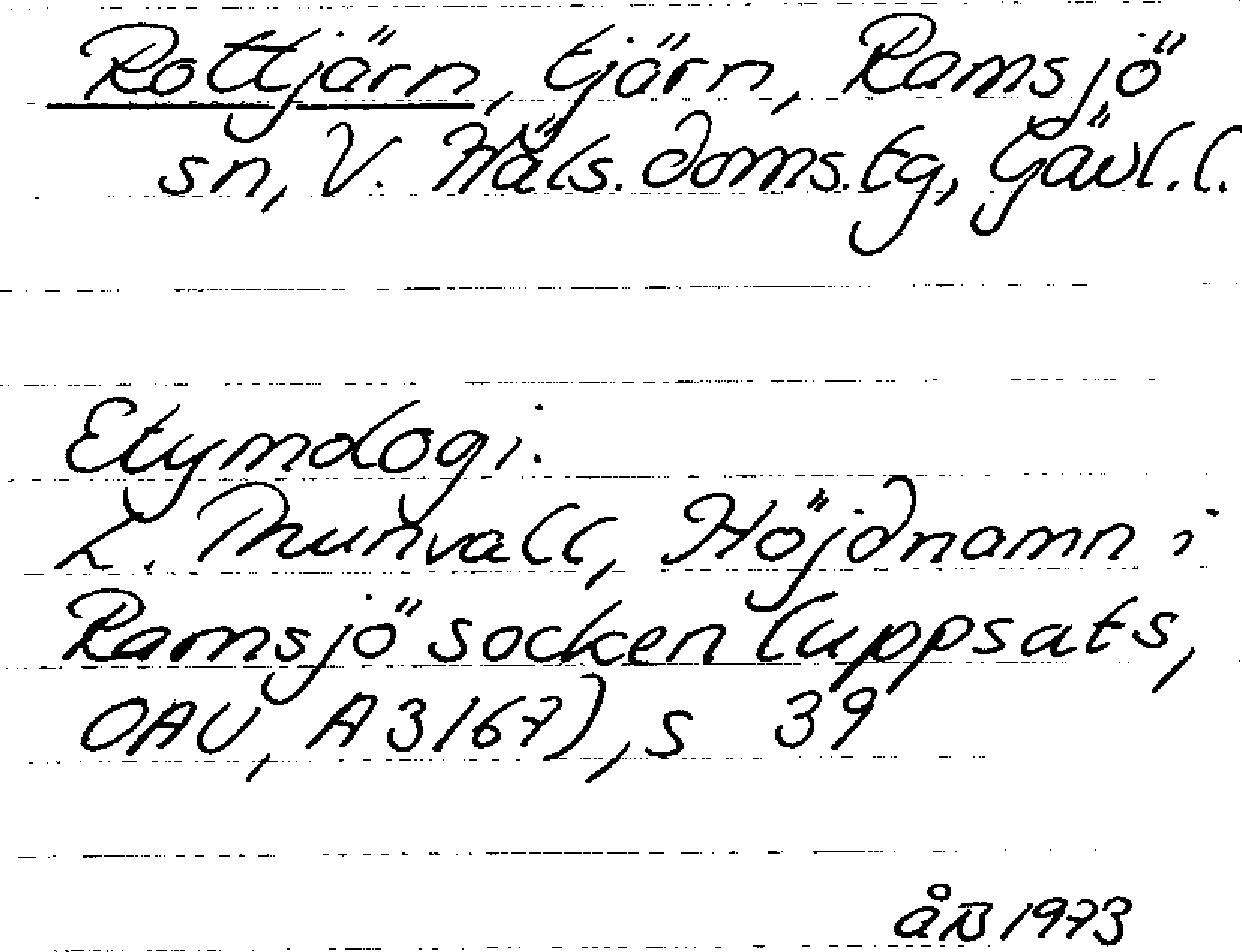 Rottjärn, tjärn, Ramsjö
sn, V. Häls. doms.tg, Gävl.l.
Etymologi.
L. Thunvall, Höjdnamn i
Ramsjö socken (uppsats,
OAU, A3167), s 39
åB 1973